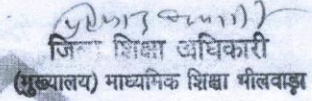 जिला शिक्षा अधिकारी
(मुख्यालय) माध्यमिक शिक्षा भीलवाड़ा